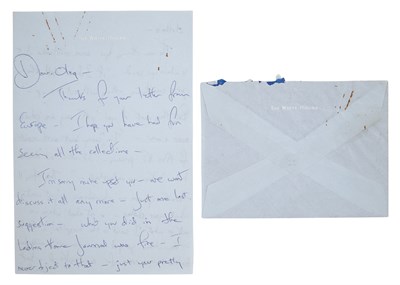 Dear Oleg –
Thanks for your letter from
Europe – I hope you have had fun
seeing all the collections –
I'm sorry note upset you – we won't
discuss it all any more – Just one last
suggestion – what you did in the
Ladies Home Journal was fine – I
never object to that – just your pretty
THE WHITE HOUSE